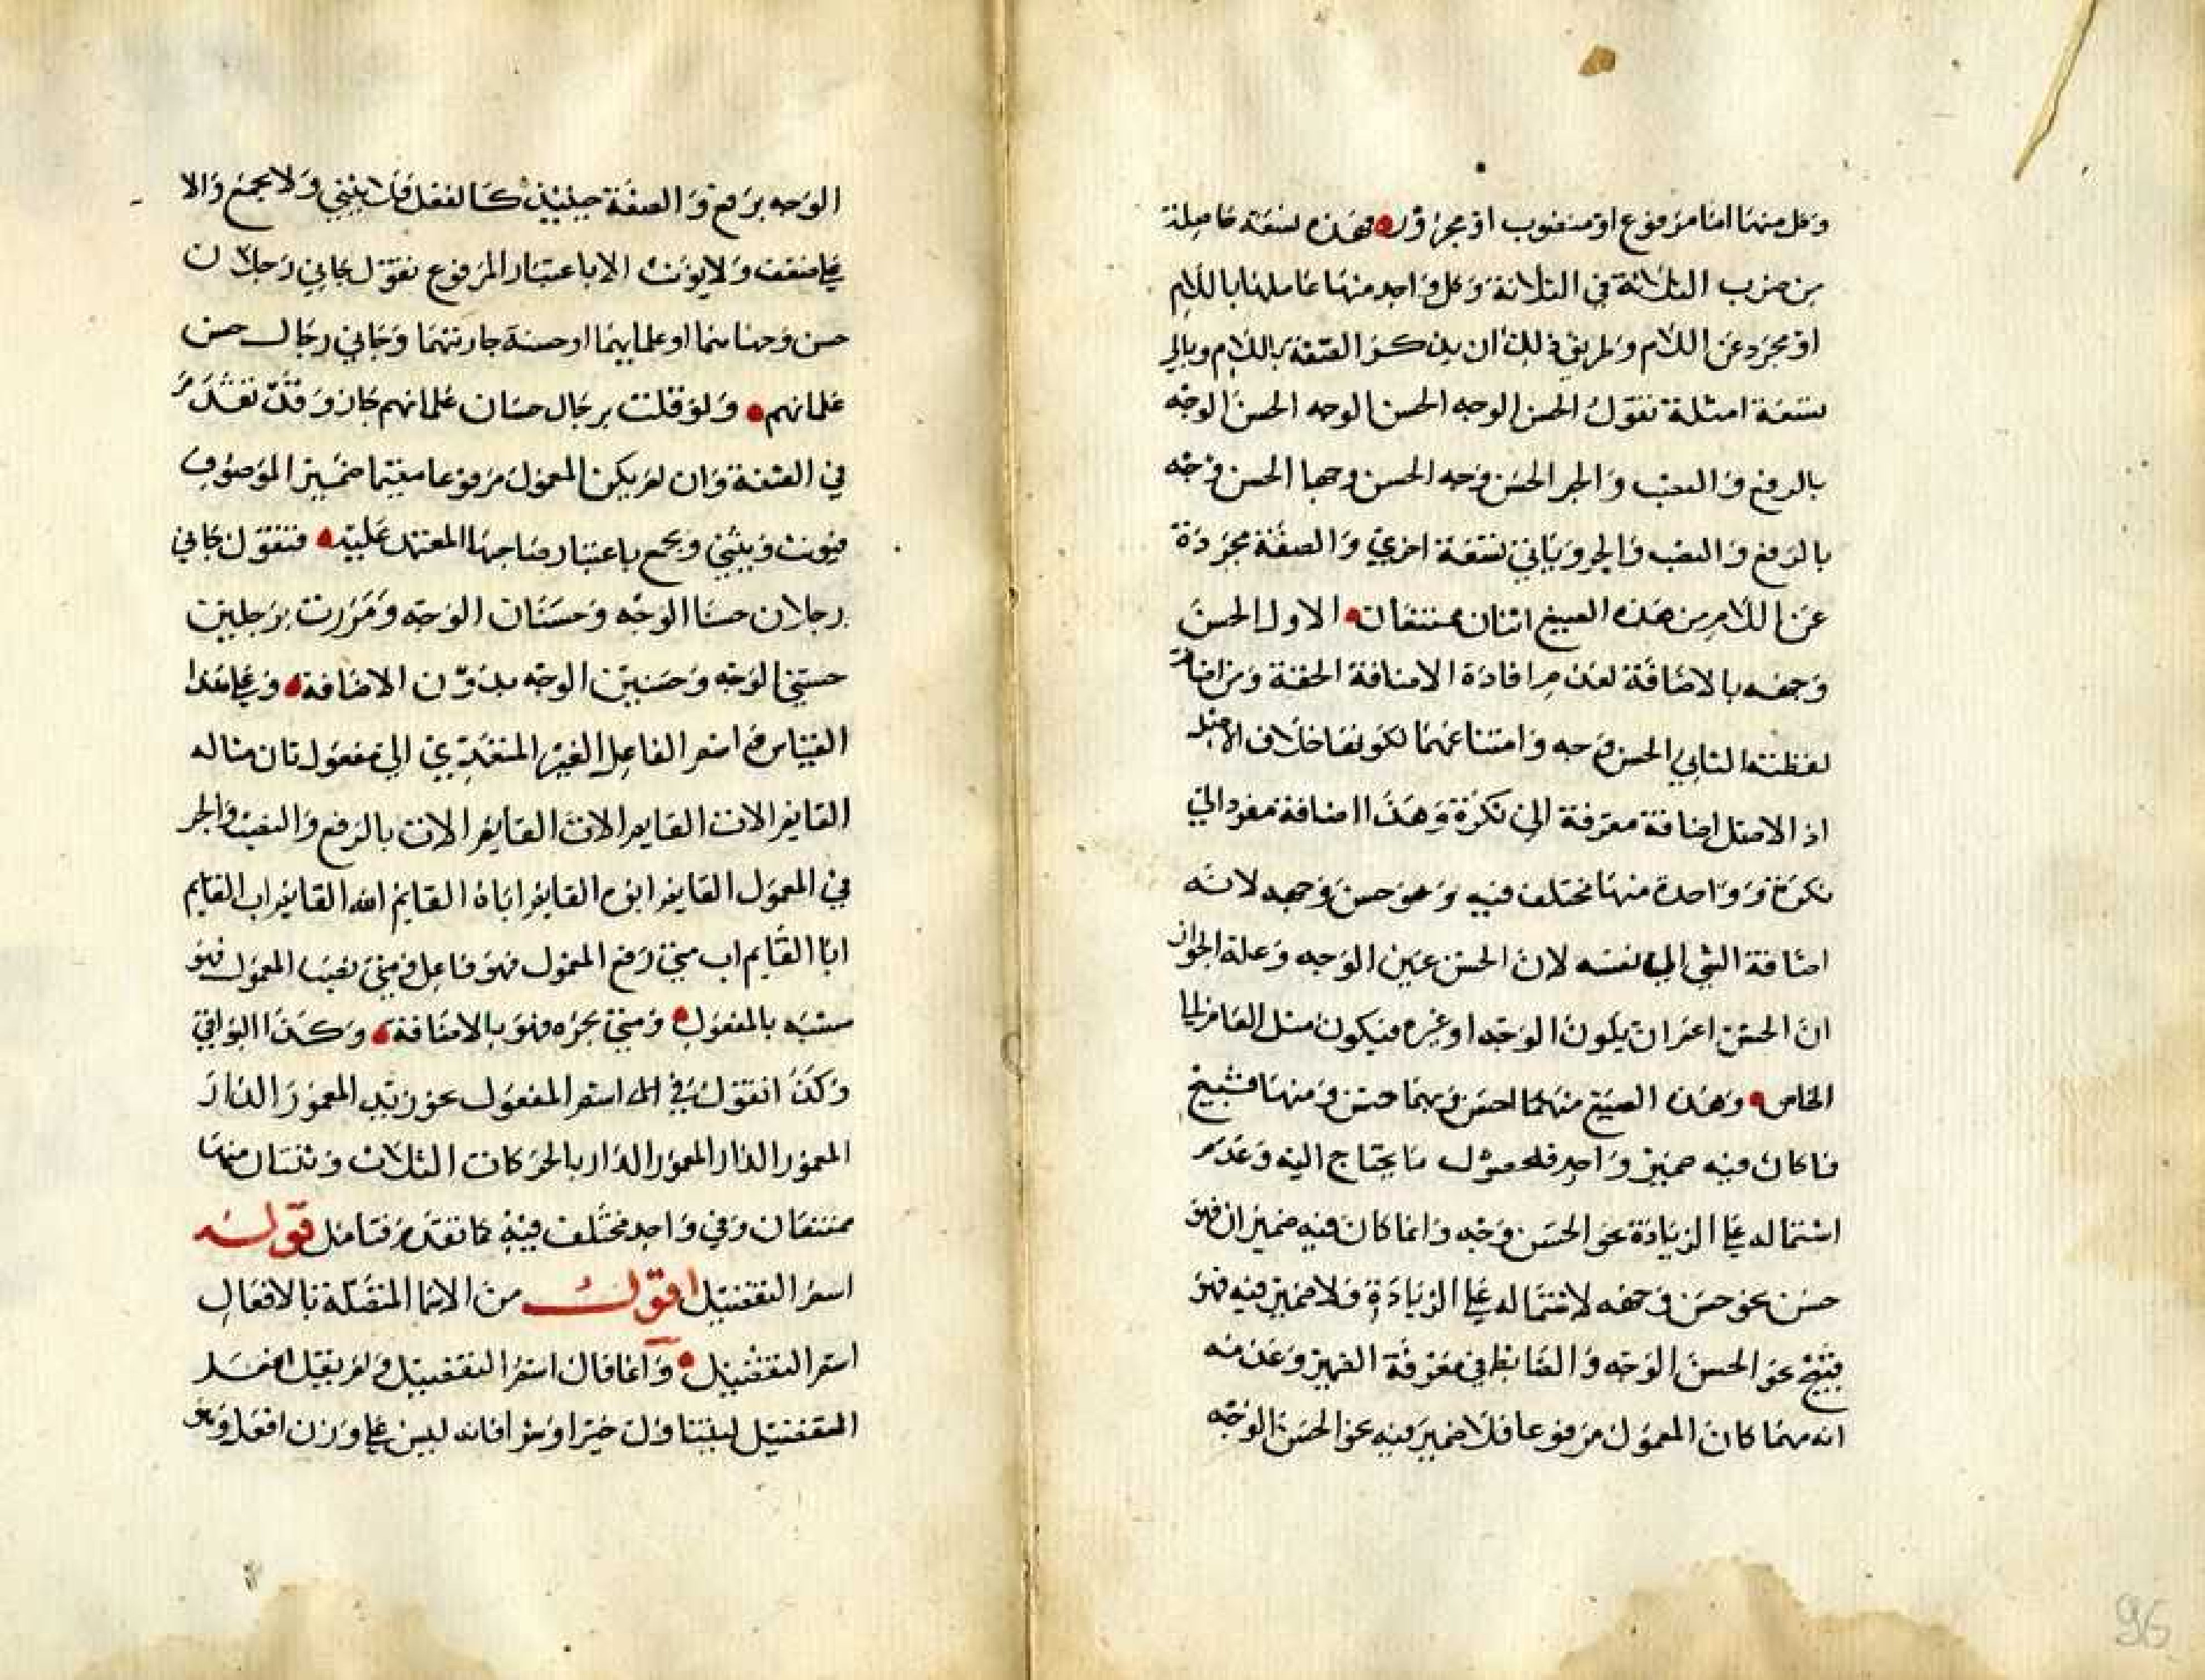 وكل منها اما مرفوع او منصوب او مجرور فهذه تسعة حاصلة
من ضرب الثلاثة في الثلاثة وكل واحد منها عاملها باللام
او مجرد عن اللام وطريق ذلك ان يذكر الصفة باللام وبالي
بتسعة امثلة تقول الحسن الوجه الحسن الوجه الحسن الوجه
بالرفع والنصب والجر الحسن وجه الحسن وجها الحسن وجه
بالرفع والنصب والجر وياتي تسعة اخري والصفة مجردة
عن اللام من هذه الصيغ اثنان ممتنعان الاول الحسن
وجهه بالاضافة لعدم افادة الاضافة الخفة
لفظيته الثاني الحسن وجه وامتناعهما لكونها خلاف الاصل
اذ الاصل اضافة معرفة الي نكرة وهذا اضافة مفرد الي
نكرة وواحدة منها مختلف فيه وهو حسن وجهه لانه
اضافة الشي الي نفسه لان الحسن عين الوجه وعلة الجواز
ان الحسن اعم ان يكون الوجه او غيره فيكون مثل العام الي
الخاص وهذه الصيغ منها احسن ومنها حسن ومنها قبيح
فما كان فيه ضمير واحد فلحصول ما يحتاج اليه وعدم
اشتماله علي الزيادة نحو الحسن وجهه واما كان فيه ضميران فهو
حسن نحو حسن وجهه لاشتماله علي الزيادة ولا ضمير فيه فهو
قبيح نحو الحسن الوجه والضابط في معرفة الضمير وعدمه
انه مهما كان المعمول مرفوعا فلا ضمير فيه نحو الحسن الوجه
الوجه برفع والصفة حينيذ كالفعل فلا يثني ولا يجمع والا
علي ضعف ولا يونث الا باعتبار المرفوع تقول جاني رجلان
حسن وحسنا او غلاماهما او حسنة جاريتهما وجاني رجال حسن
غلمانهم ولو قلت برجال حسان غلمانهم جاز وقد تقدم
في الصفة وان لم يكن المعمول مرفوعا معها ضمير الموصوف
فيونث ويثني ويجمع باعتبار صاحبها المعتمد عليه فتقول جاني
رجلان حسنا الوجه وحسنان الوجه ومررت برجلين
حسني الوجه وحسنين الوجه بدون الاضافة وعلي هذا
القياس اسم الفاعل الغير المتعدي الي مفعول ثان مثاله
القايم الاب القايم الاب القايم الاب بالرفع والنصب والجر
في المعمول القايم ابوه القايم اباه القايم ابيه القايم اب القايم
ابا القايم اب متي رفع المعمول فهو فاعل ومتي نصب المعمول فهو
مشبه بالمفعول ومتي يجره فهو بالاضافة وكذا البواقي
وكذا تقول في اسم المفعول نحو زيد المعمور الدار
المعمور الدار المعمور الدار بالحركات الثلاث وثنتان منها
ممتنعان وفي واحد مختلف فيه كما تقدم فتامل قوله
اسم التفضيل اقول من الاسما المتصلة بالافعال
اسم التفضيل وانما قال اسم التفضيل ولم يقل افعل
التفضيل ليتناول خيرا وشرا فانه ليس علي وزن افعل وهو